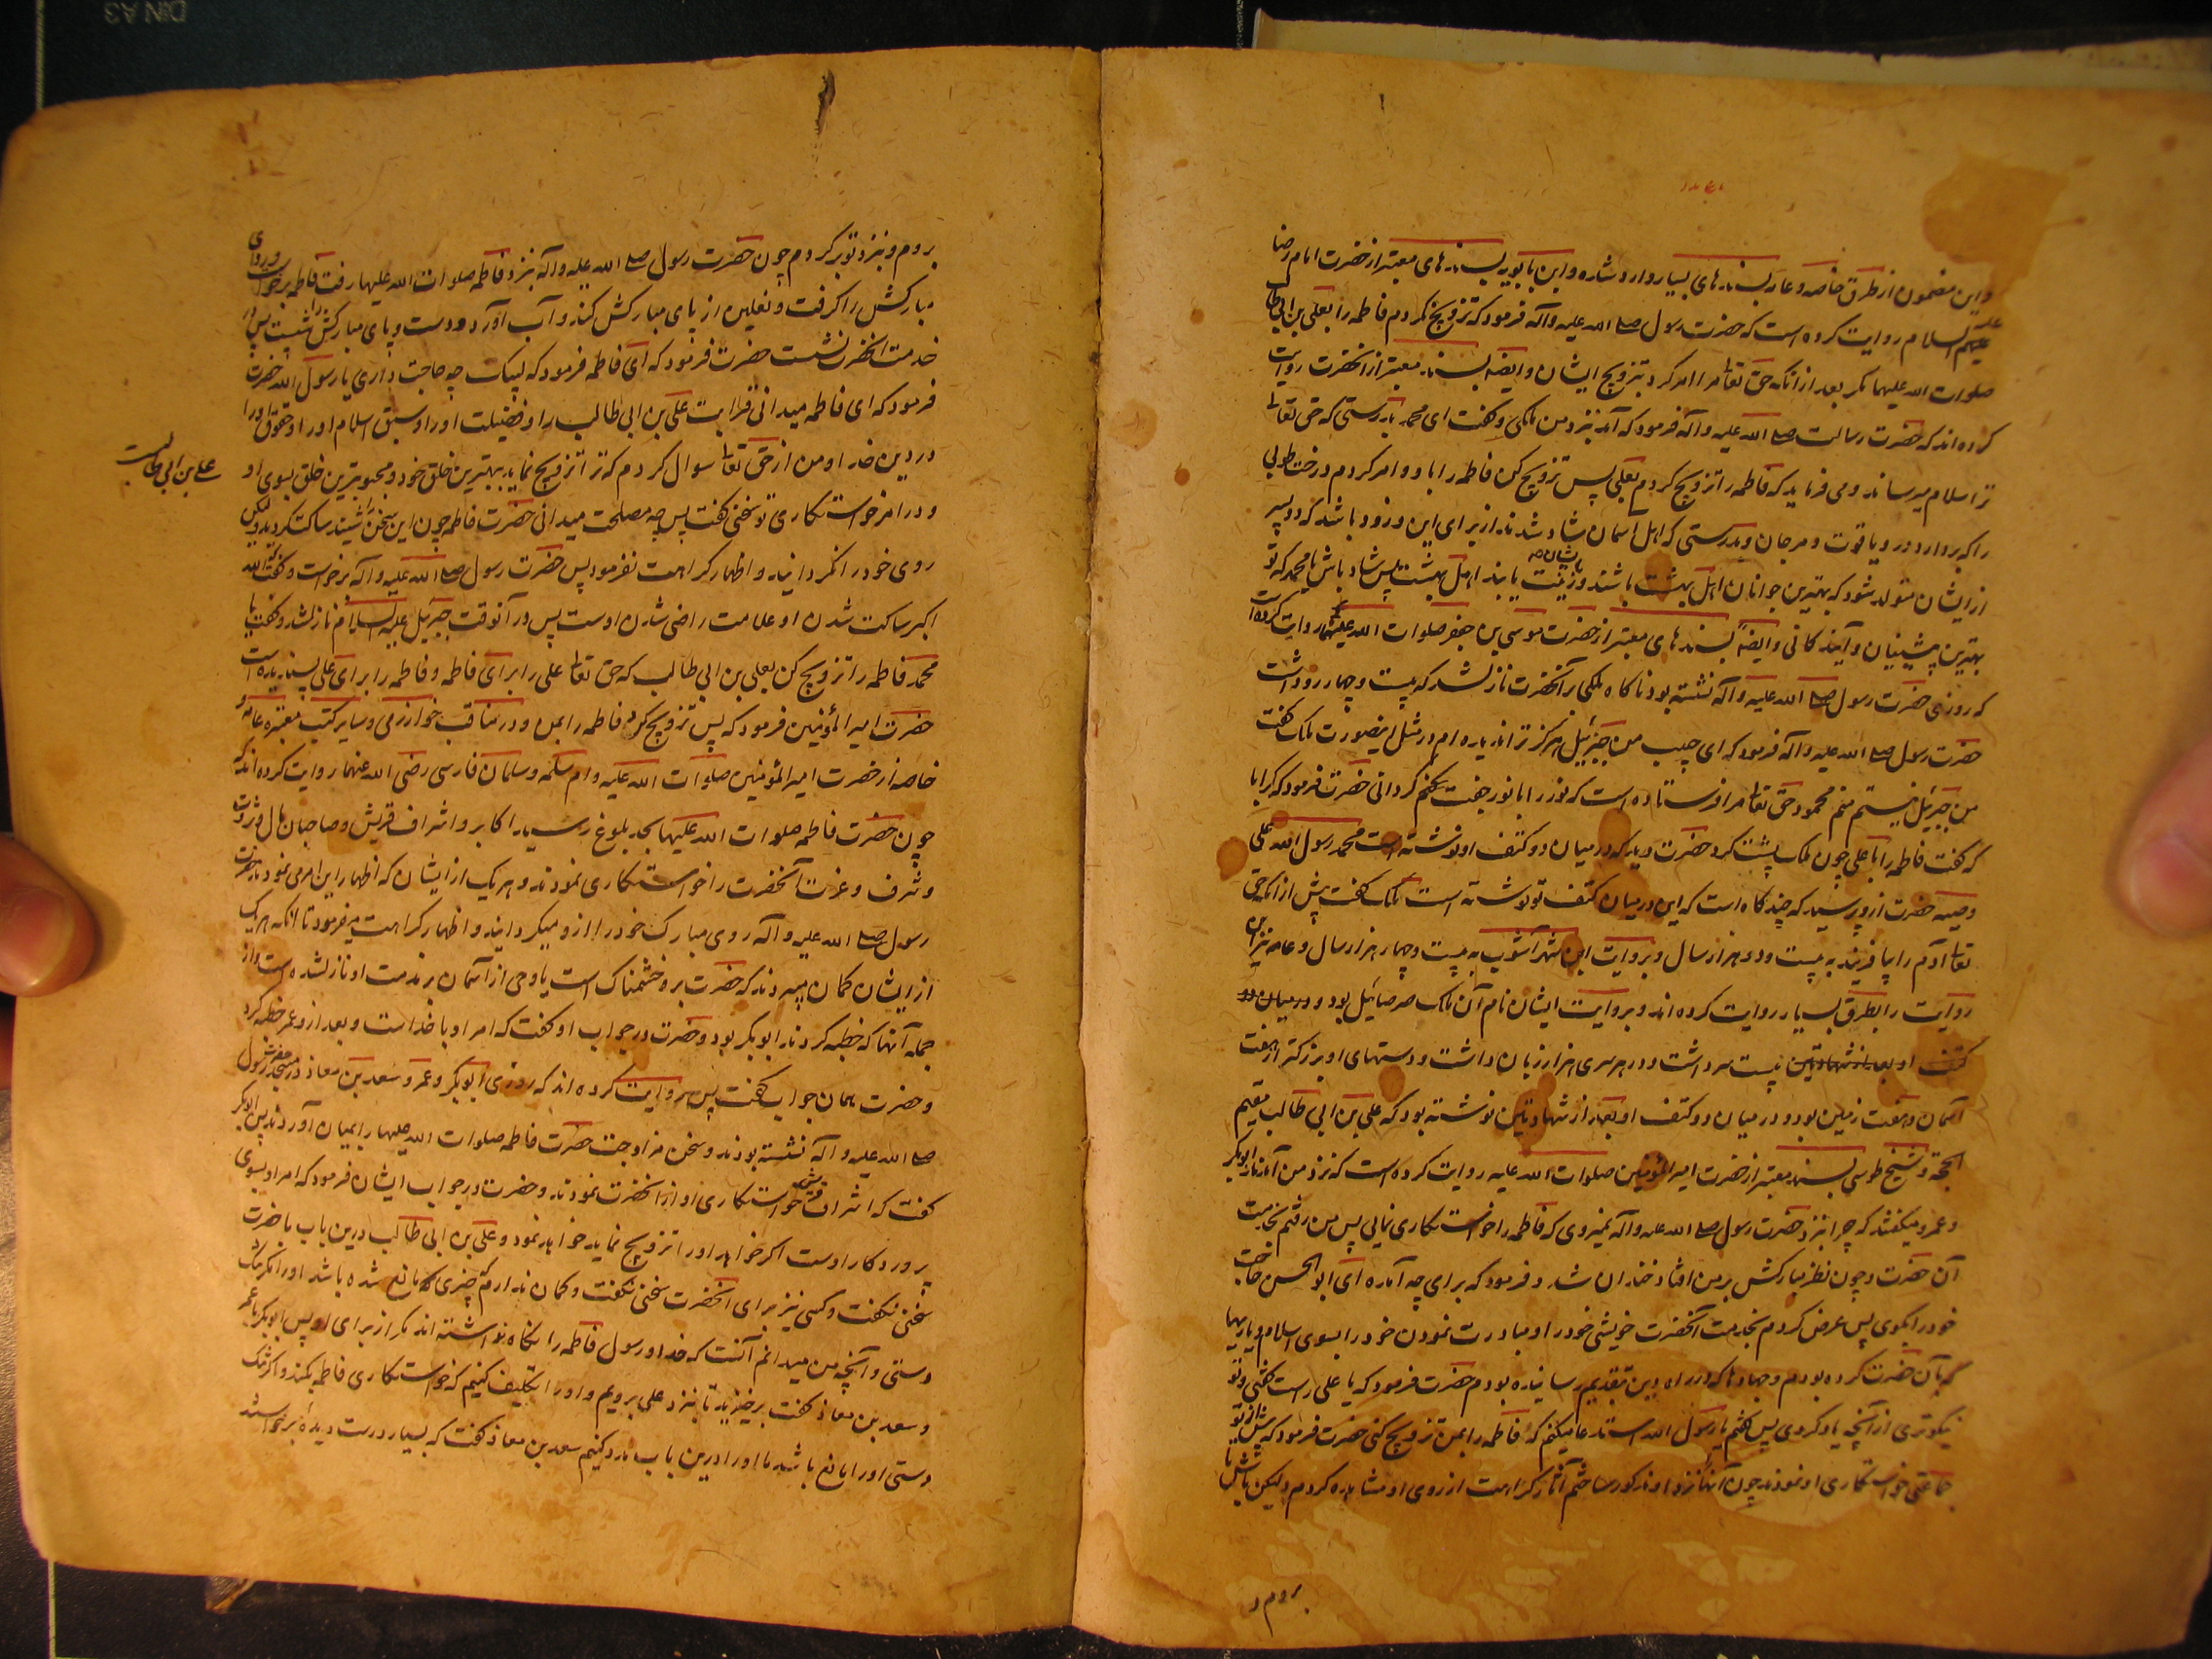 واین مضمون از طرق خاصه وعامه بسندهای بسیار وارد شده وابن بابویه بسندهای معتبر از حضرت امام رضا
علیه السلام روایت کرده است که حضرت رسول صلی الله علیه وآله فرمود که تزویج نکردم فاطمه را بعلی بن ابی طالب
صلوات الله علیهما مکر بعد ازانکه حق تعالی مرا امر کرد بتزویج ایشان وایضا بسند معتبر ازانحضرت روایت
کرده اند که حضرت رسالت صلی الله علیه وآله فرمود که آمد بنزد من ملکی وکفت ای محمد بدرستی که حق تعالی
ترا سلام میرساند ومی فرماید که فاطمه را تزویج کردم بعلی پس تزویج کن فاطمه را باو وامر کردم درخت طوبی
را که بردارد در ویاقوت ومرجان وبدرستی که اهل اسمان شاد شدند از برای این وزود باشد که دو پسر
ازایشان متولد شود که بهترین جوانان اهل بهشت باشند وزینت یابند بایشان اهل بهشت پس شاد باش یا محمد که تو
بهترین پیشینیان وآیندکانی وایضا بسندهای معتبر از حضرت موسی بن جعفر صلوات الله علیهما روایت کرده است
که روزی حضرت رسول صلی الله علیه وآله نشسته بود ناکاه ملکی بر آنحضرت نازلشد که بیست وچهار رو داشت
حضرت رسول صلی الله علیه وآله فرمود که ای حبیب من جبرئیل هرکز ترا ندیده ام در مثل اینصورت ملک کفت
من جبرئیل نیستم منم محمود حق تعالی مرا فرستاده است که نور را با نور جفت کنم کردانی حضرت فرمود که کرا با
که کفت فاطمه را با علی چون ملک پشت کرد حضرت دید که در میان دو کتف او نوشته است محمد رسول الله علی
وصیه حضرت ازو پرسید که چند کاه است که این در میان کتف تو نوشته است ملک کفت پیش ازانکه حق
تعالی آدم را بیافریند به بیست ودو هزار سال وبروایت ابن شهر آشوب به بیست وچهار هزار سال وعامه نیز این
روایت را بطرق بسیار روایت کرده اند وبروایت ایشان نام آن ملک صرصائیل بود ودرمیان دو
کتف او بعد از شهادتین بیست سر داشت ودر هر سری هزار زبان داشت ودستهای او بزرکتر از هفت
آسمان وهفت زمین بود ودر میان دو کتف او بعد از شهادتین نوشته بود که علی بن ابی طالب مقیم
الحجة وشیخ طوسی بسند معتبر از حضرت امیر المؤمنین صلوات الله علیه روایت کرده است که نزد من آمدند ابوبکر
وعمر ومیکفتند که چرا بنزد حضرت رسول صلی الله علیه وآله نمیروی که فاطمه را خواستکاری نمایی پس من رفتم بخدمت
آن حضرت وچون نظر مبارکش بر من افتاد خندان شد وفرمود که برای چه آمده ای ابو الحسن حاجت
خود را بکوی پس عرض کردم بخدمت آنحضرت خویشی خود را ومبادرت نمودن خود را بسوی اسلام ویاریها
که بآن حضرت کرده بودم وجهادها که در راه دین بتقدیم رسانیده بودم حضرت فرمود که یا علی راست کفتی وتو
نیکوتری ازآنچه یاد کردی پس کفتم یا رسول الله استدعا میکنم که فاطمه را بمن تزویج کنی حضرت فرمود که پیش از تو
جماعتی خواستکاری او نمودند چون آنها نزد او مذکور ساختم آثار کراهت از روی او مشاهده کردم ولیکن باش تا
بروم و
بروم وبنزد تو بر کردم چون حضرت رسول صلی الله علیه وآله بنزد فاطمه صلوات الله علیها رفت فاطمه برخواست وردای
مبارکش را کرفت ونعلین از پای مبارکش کند وآب آورد ودست وپای مبارکش را شست پس در
خدمت انحضرت نشست حضرت فرمود که ای فاطمه فرمود که لبیک چه حاجت داری یا رسول الله حضرت
فرمود که ای فاطمه میدانی قرابت علی بن ابی طالب را وفضیلت اورا وسبق اسلام اورا وحقوق اورا
در دین خدا ومن از حق تعالی سوال کردم که ترا تزویج نماید ببهترین خلق خود ومحبوبترین خلق بسوی او
علی بن ابی طالب
ودر امر خواستکاری تو سخنی کفت پس چه مصلحت میدانی حضرت فاطمه چون این سخن شنید ساکت کردید ولیکن
روی خود را نکردانید واظهار کراهت نفرمود پس حضرت رسول صلی الله علیه وآله برخواست وکفت که الله
اکبر ساکت شدن او علامت راضی شدن اوست پس در آنوقت جبرئیل علیه السلام نازلشد وکفت یا
محمد فاطمه را تزویج کن بعلی بن ابی طالب که حق تعالی علی را برای فاطمه وفاطمه را برای علی پسندیده است
حضرت امیر المؤمنین فرمود که پس تزویج کرد فاطمه را بمن ودر مناقب خوارزمی وسایر کتب معتبره عامه و
خاصه از حضرت امیر المؤمنین صلوات الله علیه وام سلمه وسلمان فارسی رضی الله عنهما روایت کرده اند که
چون حضرت فاطمه صلوات الله علیها بحد بلوغ رسید اکابر واشراف قریش وصاحبان مال وثروت
وشرف وعزت آنحضرت را خواستکاری نمودند وهریک ازایشان که اظهار این امر می نمود حضرت
رسول صلی الله علیه وآله روی مبارک خود را ازو میکردانید واظهار کراهت میفرمود تا انکه هریک
ازایشان کمان میبردند که حضرت برو خشمناک است یا وحی از آسمان بر مذمت او نازلشده است واز
جمله آنها که خطبه کردند ابوبکر بود وحضرت در جواب او کفت که امر او با خداست وبعد ازو عمر خطبه کرد
وحضرت همان جواب کفت پس روایت کرده اند که روزی ابوبکر وعمر وسعد بن معاذ در مسجد حضرت رسول
صلی الله علیه وآله نشسته بودند وسخن مزاوجت حضرت فاطمه صلوات الله علیها را بمیان آوردند پس ابوبکر
کفت که اشراف قریش خواستکاری او از انحضرت نمودند وحضرت در جواب ایشان فرمود که امر او بسوی
پروردکار اوست اکر خواهد اورا تزویج نماید خواهد نمود وعلی بن ابی طالب درین باب با حضرت
سخنی نکفت وکسی نیز برای انحضرت سخنی نکفت وکمان ندارم که چیزی مانع شده باشد اورا مکر تنک
دستی وآنچه من میدانم آنست که خدا ورسول فاطمه را نکاه نداشته اند مکر از برای او پس ابوبکر با عمر
وسعد بن معاذ کفت برخیزید تا بنزد علی برویم واورا تکلیف کنیم که خواستکاری فاطمه بکند واکر تنک
دستی اورا مانع باشد ما اورا درین باب مدد کنیم سعد بن معاذ کفت که بسیار درست دیدهٔ برخواستند